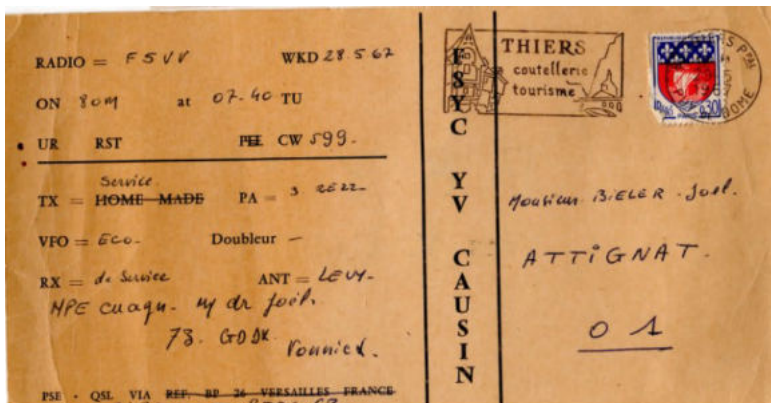 RADIO = F5VV WKD 28.5.67
ON 80M at 07-40 TU
UR RST FEE CW 599-
Service
TX = HOME MADE PA = 3
VFO = Eco- Doubleur -
RX = de Service ANT = LEVY-
HPE cuagn- my dr Joël.
73. GDDX
PSE - QSL VIA REF. BP 26 VERSAILLES FRANCE
F5YC YV CAUSIN
THIERS
coutellerie
tourisme
THIERS PPAL
PUY DE DOME
0,30
Monsieur BIELER Joel.
ATTIGNAT.
01